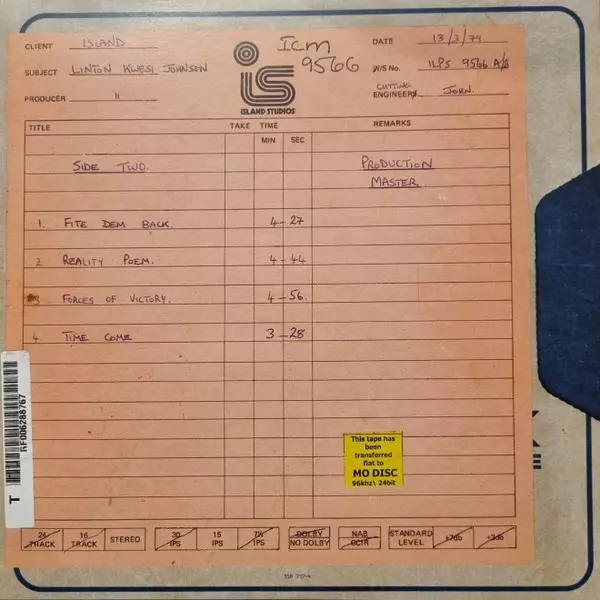 CLIENT ISLAND
Icm
9566
DATE 13/3/79
SUBJECT LINTON KWESI JOHNSON
W/S No. ILPS 9566 A/B
PRODUCER "
CUTTING
ENGINEER JOHN.
is
ISLAND STUDIOS
TITLE TAKE TIME REMARKS
MIN SEC
SIDE TWO. PRODUCTION
MASTER
1. FITE DEM BACK. 4-27
2 REALITY POEM. 4-44
3 FORCES OF VICTORY. 4-56.
4. TIME COME 3-28
T
RF006288767
This tape has
been
transferred
flat to
MO DISC
96khz\ 24bit
24 TRACK 16 TRACK STEREO 30 IPS 15 IPS 7½ IPS DOLBY NO DOLBY NAB CCIR STANDARD LEVEL +7db +3db